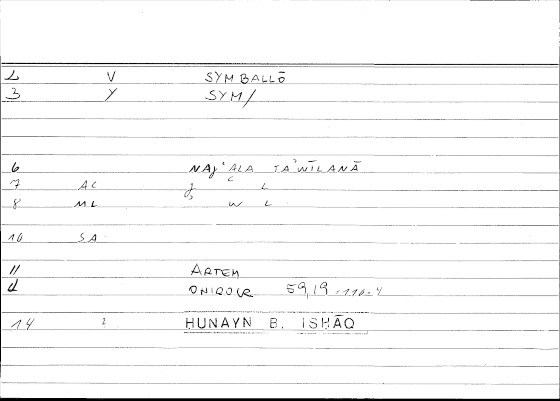 2 V SYMBALLŌ
3 Y SYM/
6 NAJʿALA TAʾWĪLANĀ
7 AC J ʿ L
8 ML ʾ W L
10 SA
11 ARTEM
ONIROCR 59,19-110-4
14 2 HUNAYN B. ISHĀQ